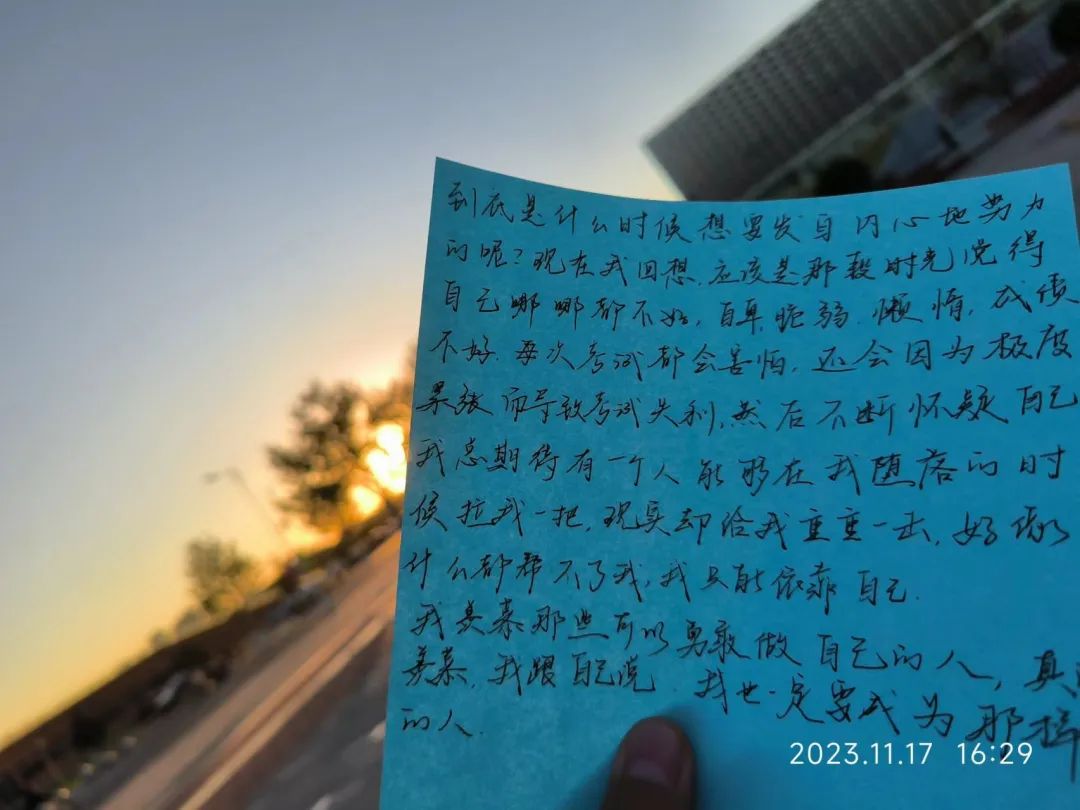 到底是什么时候想要发自内心地努力
的呢?现在我回想,应该是那段时光觉得
自己哪哪都不好,自卑,脆弱.懒惰,成绩
不好.每次考试都会害怕,还会因为极度
紧张而导致考试失利,然后不断怀疑自己
我总期待有一个人能够在我堕落的时
候拉我一把,现实却给我重重一击,好像
什么都帮不了我,我只能依靠自己.
我羡慕那些可以勇敢做自己的人,真
羡慕,我跟自己说.我也一定要成为那样
的人.
2023.11.17 16:29